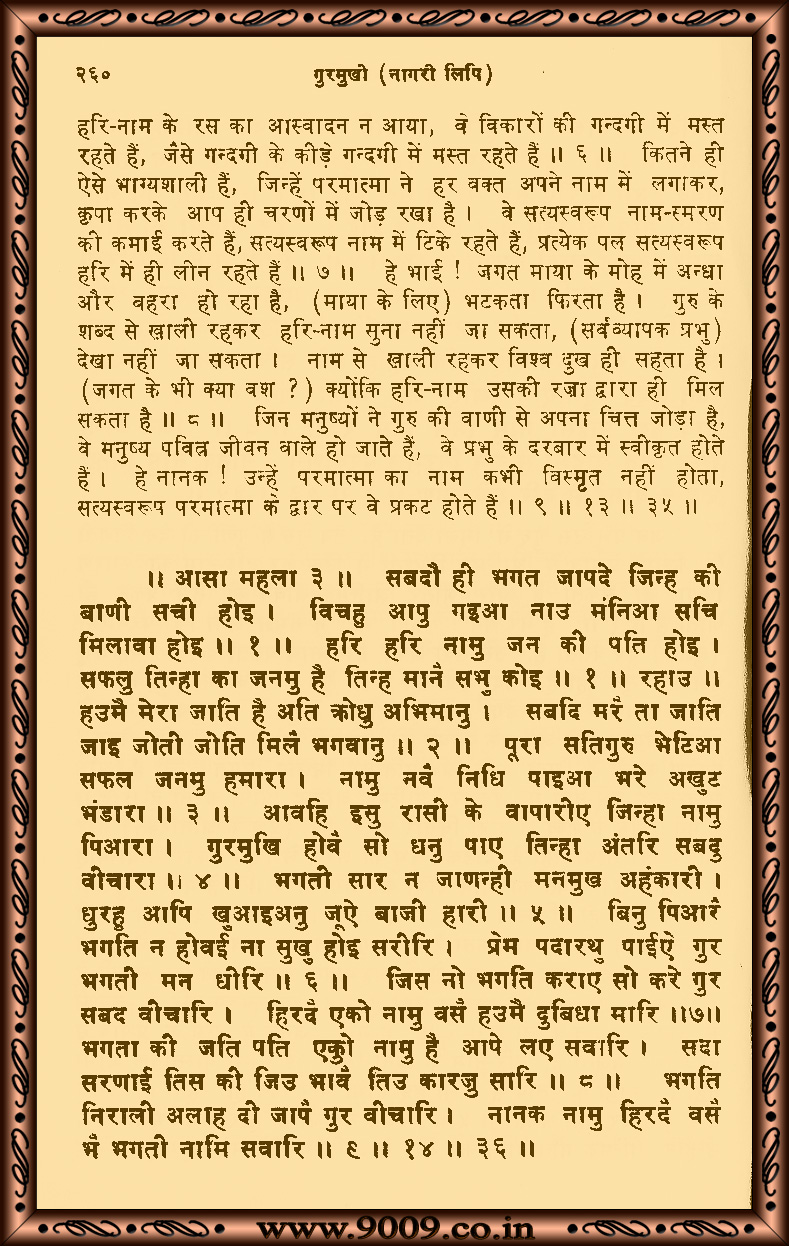 २६०
गुरमुखी (नागरी लिपि)
हरि-नाम के रस का आस्वादन न आया, वे विकारों की गन्दगी में मस्त
रहते हैं, जैसे गन्दगी के कीड़े गन्दगी में मस्त रहते हैं ॥ ६ ॥ कितने ही
ऐसे भाग्यशाली हैं, जिन्हें परमात्मा ने हर वक्त अपने नाम में लगाकर,
कृपा करके आप ही चरणों में जोड़ रखा है । वे सत्यस्वरूप नाम-स्मरण
की कमाई करते हैं, सत्यस्वरूप नाम में टिके रहते हैं, प्रत्येक पल सत्यस्वरूप
हरि में ही लीन रहते हैं ॥ ७ ॥ हे भाई ! जगत माया के मोह में अन्धा
और बहरा हो रहा है, (माया के लिए) भटकता फिरता है । गुरु के
शब्द से खाली रहकर हरि-नाम सुना नहीं जा सकता, (सर्वव्यापक प्रभु)
देखा नहीं जा सकता । नाम से खाली रहकर विश्व दुख ही सहता है ।
(जगत के भी क्या वश ?) क्योंकि हरि-नाम उसकी रजा द्वारा ही मिल
सकता है ॥ ८ ॥ जिन मनुष्यों ने गुरु की वाणी से अपना चित्त जोड़ा है,
वे मनुष्य पवित्र जीवन वाले हो जाते हैं, वे प्रभु के दरबार में स्वीकृत होते
हैं । हे नानक ! उन्हें परमात्मा का नाम कभी विस्मृत नहीं होता,
सत्यस्वरूप परमात्मा के द्वार पर वे प्रकट होते हैं ॥ ९ ॥ १३ ॥ ३५ ॥
॥ आसा महला ३ ॥ सबदौ ही भगत जापदे जिन्ह की
बाणी सची होइ । विचहु आपु गइआ नाउ मंनिआ सचि
मिलावा होइ ॥ १ ॥ हरि हरि नामु जन की पति होइ ।
सफलु तिन्हा का जनमु है तिन्ह मानै सभु कोइ ॥ १ ॥ रहाउ ॥
हउमै मेरा जाति है अति क्रोधु अभिमानु । सबदि मरै ता जाति
जाइ जोती जोति मिलै भगवानु ॥ २ ॥ पूरा सतिगुरु भेटिआ
सफल जनमु हमारा । नामु नवै निधि पाइआ भरे अखुट
भंडारा ॥ ३ ॥ आवहि इसु रासी के वापारीए जिन्हा नामु
पिआरा । गुरमुखि होवै सो धनु पाए तिन्हा अंतरि सबदु
वीचारा ॥ ४ ॥ भगती सार न जाणन्ही मनमुख अहंकारी ।
धुरहु आपि खुआइअनु जूऐ बाजी हारी ॥ ५ ॥ बिनु पिआरै
भगति न होवई ना सुखु होइ सरीरि । प्रेम पदारथु पाईऐ गुर
भगती मन धीरि ॥ ६ ॥ जिस नो भगति कराए सो करे गुर
सबद वीचारि । हिरदै एको नामु वसै हउमै दुबिधा मारि ॥७॥
भगता की जति पति एकुो नामु है आपे लए सवारि । सदा
सरणाई तिस की जिउ भावै तिउ कारजु सारि ॥ ८ ॥ भगति
निराली अलाह दी जापै गुर वीचारि । नानक नामु हिरदै वसै
भै भगती नामि सवारि ॥ ९ ॥ १४ ॥ ३६ ॥
www.9009.co.in